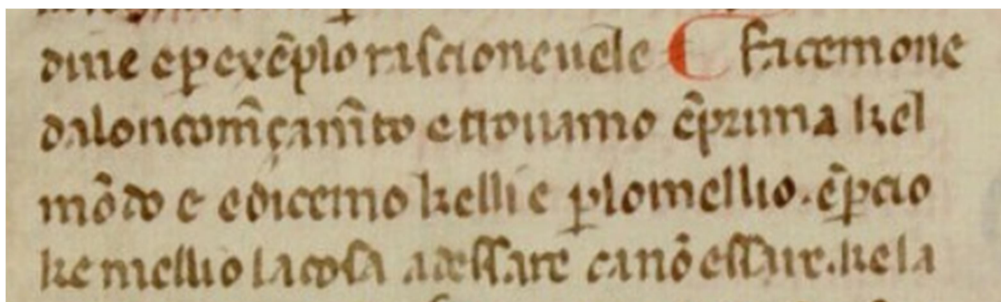 dine eꝑ exẽplo rascioneuele ¶ facemone
daloncom̃çam̃to etrouamo ẽprima kel
mõdo e edicemo kellie ꝑlomellio.ẽꝑcio
ke mellio lacosa adessare canõ essare.kela